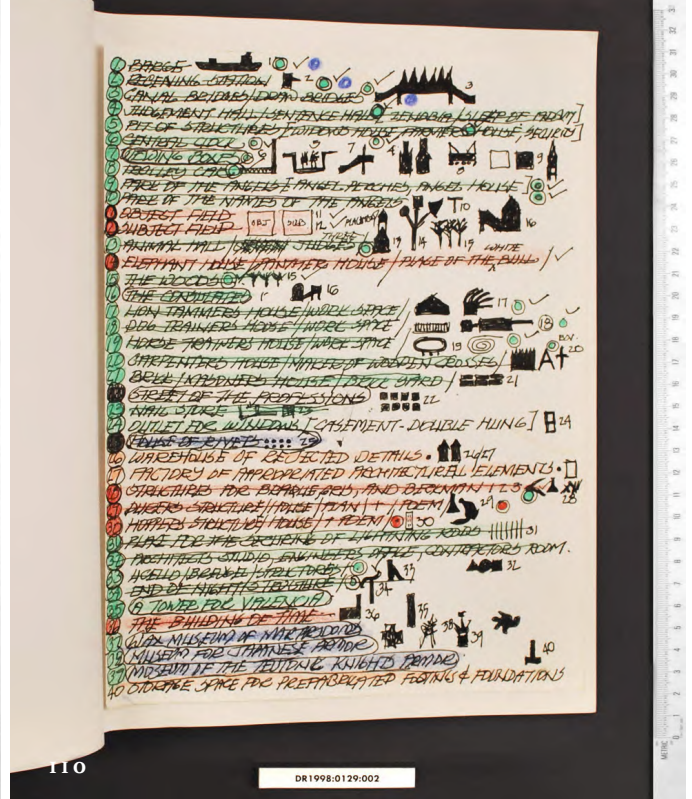 1 BARGE 1
2 REDENING STATION 2
3 CANAL BRIDGES/DRAW BRIDGES 3
4 JUDGEMENT HALL/SENTENCE HALL/ZENOBIA/SLEEP OF ADAM?]
5 PIT OF STRUCTURES/[WIDOWS HOUSE, FARMERS HOUSE, SECURITY]
6 CENTRAL CLOCK
7 VIEWING BOXES 6 5 7 4 8 9
8 TROLLEY CARS
9 PARK OF THE ANGELS [ANGEL PERCHES, ANGEL HOUSE]
10 PARK OF THE NAMES OF THE ANGELS
11 OBJECT FIELD OBJ SUB 11 10
12 SUBJECT FIELD 12 16
13 ANIMAL HALL/JUDGES THREE 13 14 15
14 ELEPHANT HOUSE/PANTHERS HOUSE/PLACE OF THE WHITE BULL/
15 THE WOODS 15
16 THE CONSULATES 16
17 LION TAMMERS HOUSE/WORK SPACE/ 17
18 DOG TRAINERS HOUSE/WORK SPACE/ 18
19 HORSE TRAINERS HOUSE/WORK SPACE/ 19 B.V.
20 CARPENTERS HOUSE/MAKER OF WOODEN CROSSES/ A+ 20
21 BRICK/MASONERS HOUSE/BRICK YARD/ 21
22 STREET OF THE PROFESSIONS 22
23 NAIL STORE
24 OUTLET FOR WINDOWS [CASEMENT-DOUBLE HUNG] 24
25 HOUSE OF RIVETS 25
26 WAREHOUSE OF REJECTED DETAILS. 26/27
27 FACTORY OF APPROPRIATED ARCHITECTURAL ELEMENTS.
28 STRUCTURES FOR BEARDSLEY, AND BECKMAN 123 28
29 STRUCTURE/HOUSE/PLAN + POEM 29
30 HOPPERS STRUCTURE HOUSE + POEM 30
31 PLACE FOR THE SECURING OF LIGHTNING RODS 31
32 ARCHITECTS STUDIO, ENGINEERS OFFICE, CONTRACTORS ROOM.
33 STRUCTURES 33 32
34 END OF NIGHTS STRUCTURE 34
35 A TOWER FOR VALENCIA
36 THE BUILDING OF TIME 36 35
37 WAX MUSEUM OF WAR 38 39
38 MUSEUM FOR JAPANESE ARMOR
39 MUSEUM OF THE TEUTONIC KNIGHTS ARMOR 40
40 STORAGE SPACE FOR PREFABRICATED FOOTINGS & FOUNDATIONS
110
DR1998:0129:002
METRIC 1 2 3 4 5 6 7 8 9 10 11 12 13